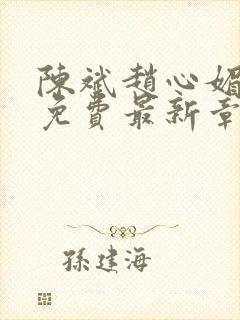 陳斌趙心媚
免費最新章
孫建海